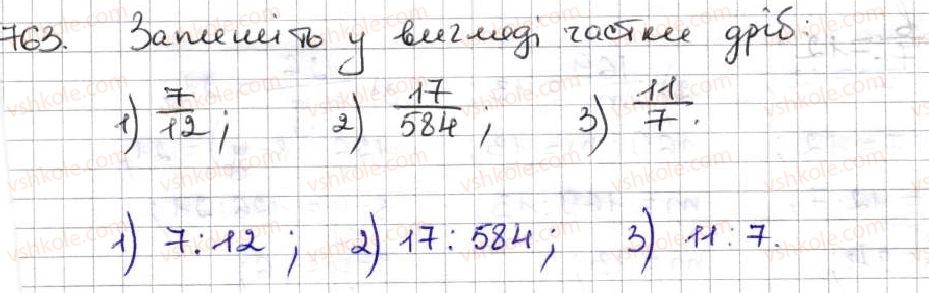 763. Запишіть у вигляді частки дріб:
1) 7/12; 2) 17/584; 3) 11/7.
1) 7:12; 2) 17:584; 3) 11:7.